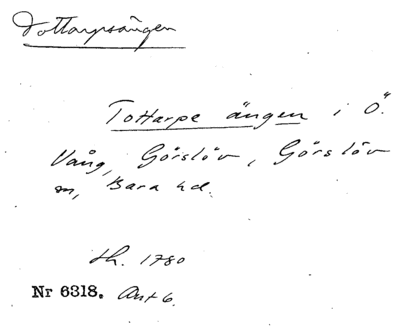 Tottarpsängen
Tottarpe ängen i Ö.
Vång, Görslöv, Görslöv
sn, Bara hd.
sk. 1780
Nr 6318. Akt 6.